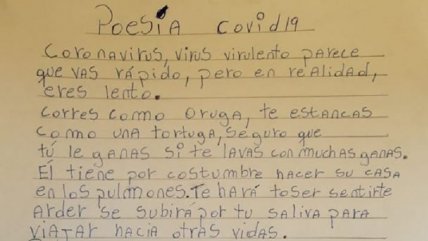 Poesia covid19
Coronavirus, virus virulento parece
que vas rápido, pero en realidad,
eres lento.
Corres como oruga, te estancas
como una tortuga, seguro que
tú le ganas si te lavas con muchas ganas.
Él tiene por costumbre hacer su casa
en los pulmones. Te hará toser sentirte
arder se subirá por tu saliva para
viajar hacia otras vidas.